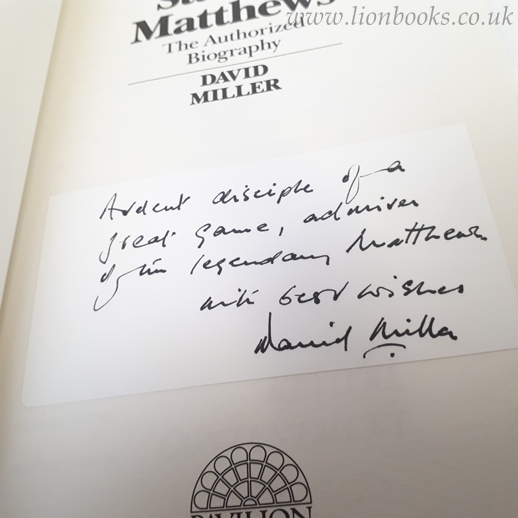 www.lionbooks.co.uk
Matthews
The Authorized
Biography
DAVID
MILLER
Ardent disciple of a
great game, admirer
of the legendary Matthews
with best wishes
David Miller
PAVILION